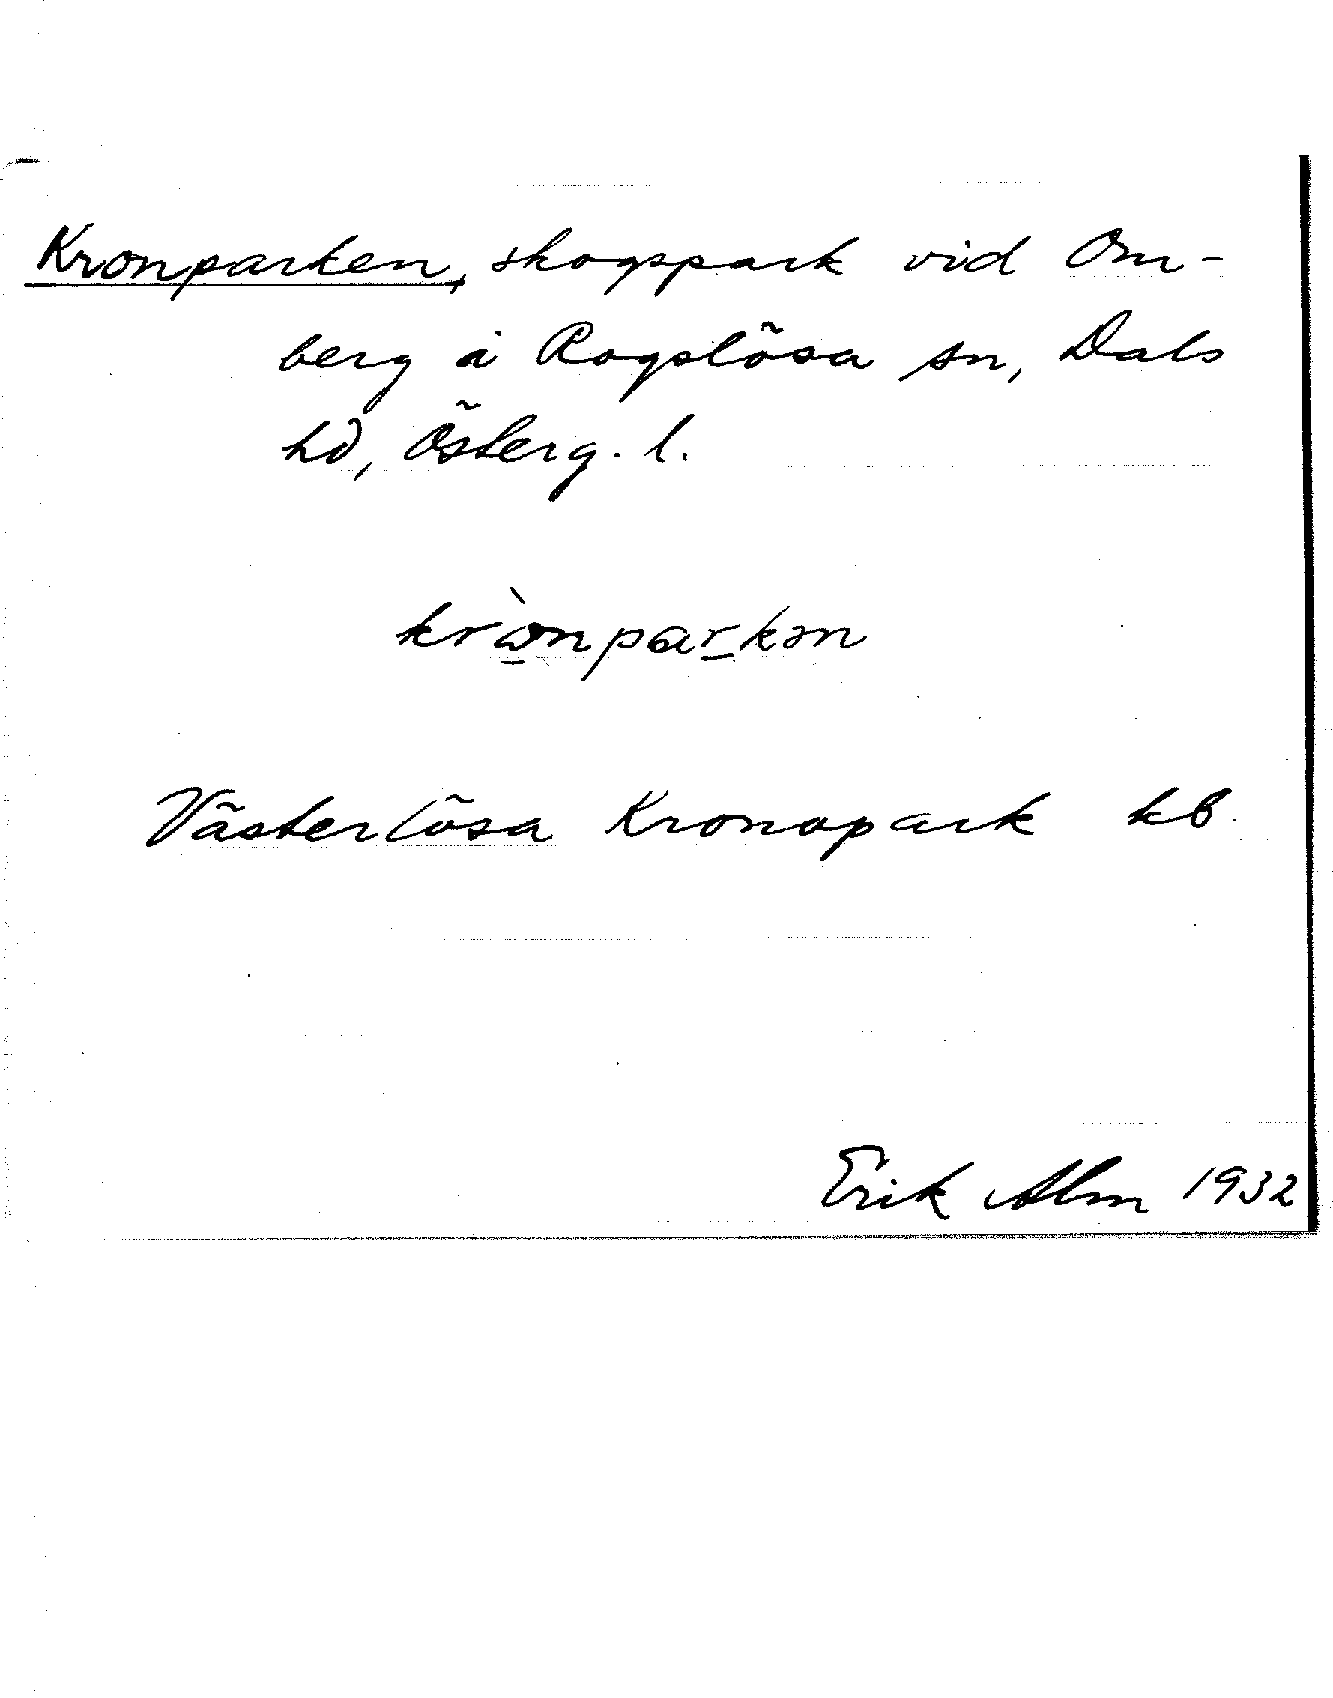 Kronparken, skogspark vid Om-
berg å Rogslösa sn, Dals
hd, Österg. l.
krὼnpar̲kən
Västerlösa Kronopark kb.
Erik Alm 1932